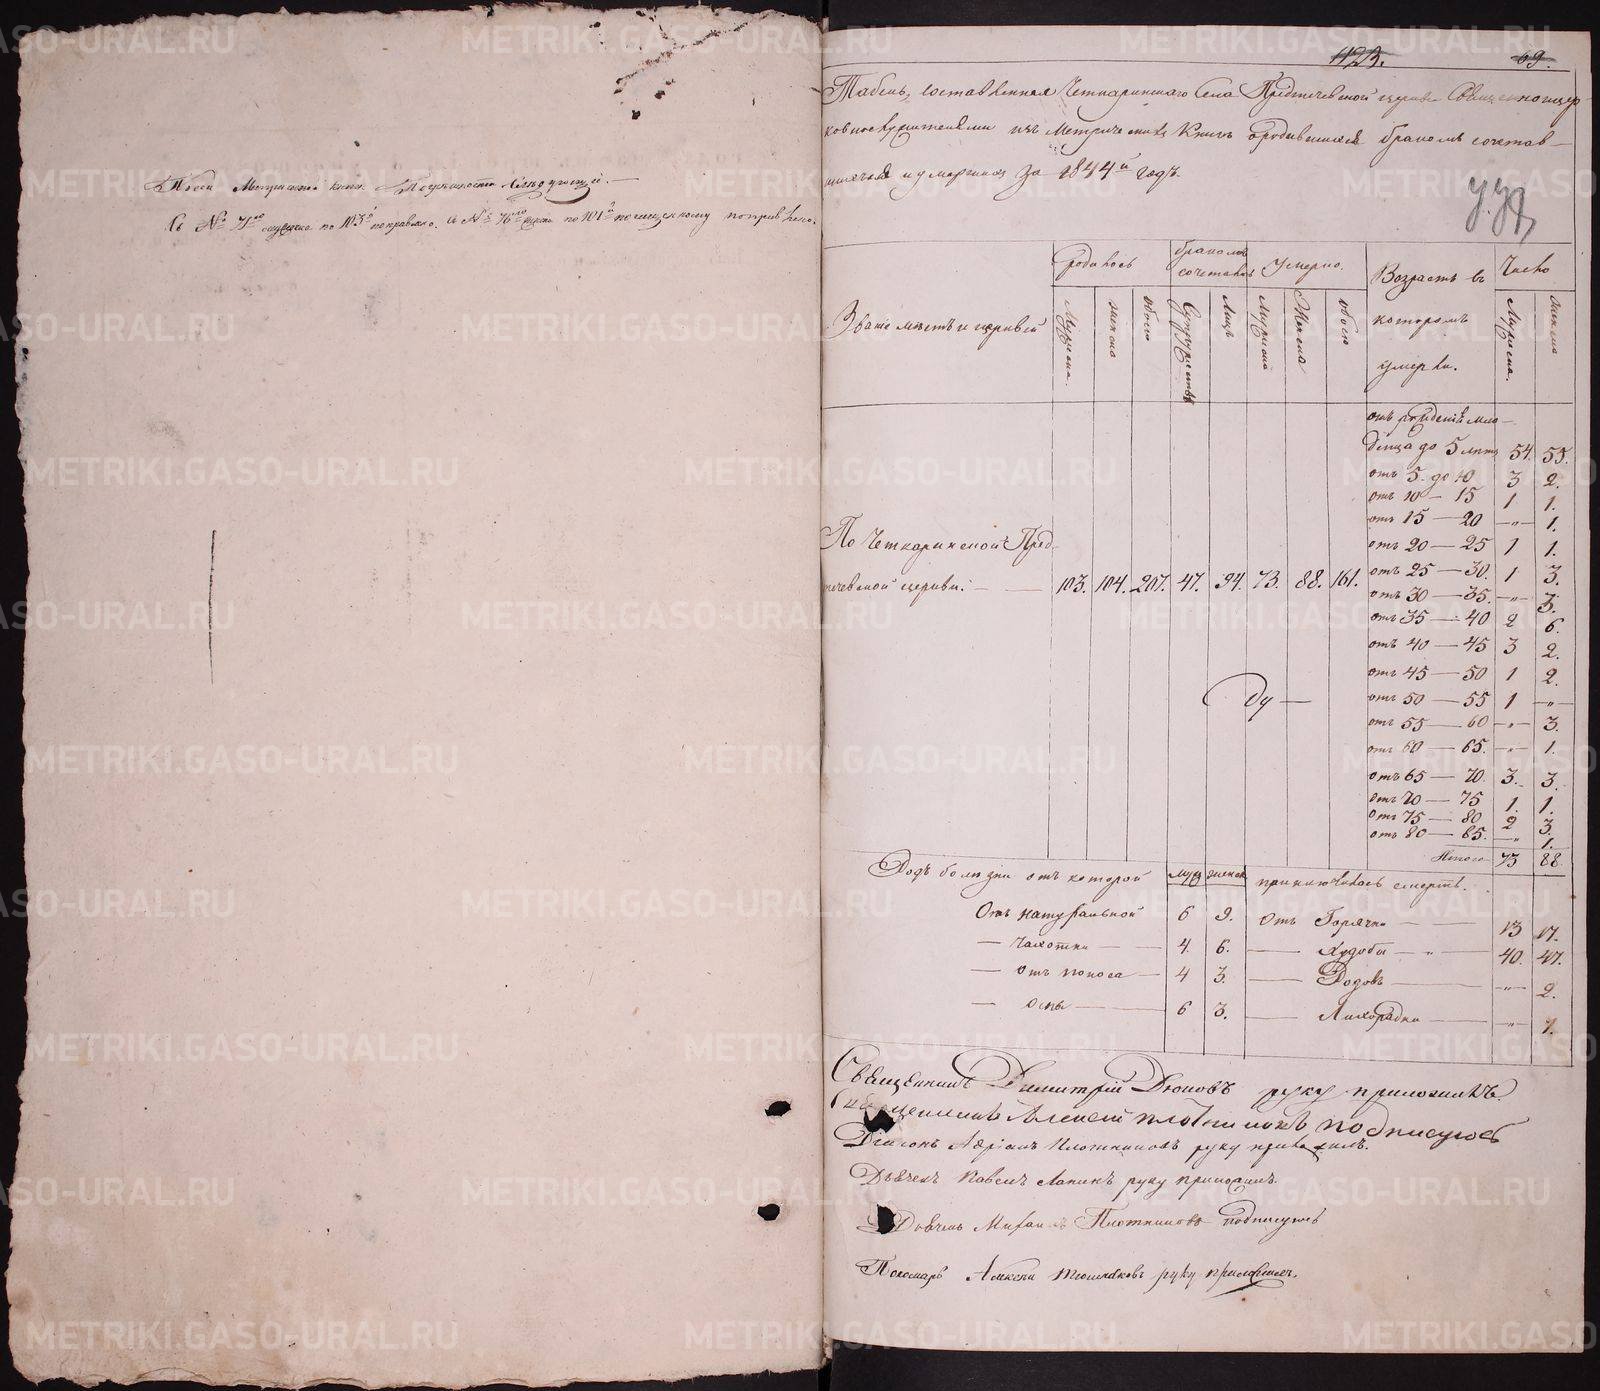 По сей Метрической книге
съ № 71го мужеска по 103й поправлено. и № 76го женска по 101й почищенному поправлено.
423. 69.
Табель, составленная Четкаринскаго Села Предтечевской церкви Священноцер-
ковнослужителями изъ Метрическихъ Книгъ о родившихся бракомъ сочетав-
шихся и умершихъ за 1844й годъ.
Званіе мѣстъ и церквей
родилось
бракомъ сочеталось
Умерло.
Возрастъ въ которомъ умерли.
Число
Мужеска. женска обоего Супружествъ Лицъ Мужеска Женска обоего Мужеска. женска
По Четкаринской Пред-
течевской церкви. — 103. 104. 207. 47. 94. 73. 88. 161.
отъ рожденія мла-
денца до 5 лѣтъ 54. 55.
отъ 5. до 10 3 2.
отъ 10 — 15 1 1.
отъ 15 — 20 —"— 1.
отъ 20 — 25 1 1.
отъ 25 — 30. 1 3.
отъ 30 — 35. —"— 3.
отъ 35 — 40 2 6.
отъ 40 — 45 3 2.
отъ 45 — 50 1 2.
отъ 50 — 55 1 —"—
отъ 55 — 60 —"— 3.
отъ 60 — 65. —"— 1.
отъ 65 — 70. 3. 3.
отъ 70 — 75 1. 1.
отъ 75 — 80 2 3.
отъ 80 — 85. —"— 1.
Итого 73 88.
Родъ болѣзни отъ которой муж женск приключилась смерть.
Отъ натуральной 6 9. Отъ Горячки — 13 17.
— Чахотки — 4. 6. — Худобы —"— 40. 47.
— отъ поноса — 4 3. — Родовъ — —"— 2.
— Оспы — 6 3. — Лихорадки — —"— 1.
Священникъ Димитрій руку приложилъ
Священникъ Алексей Плотниковъ подписуюсь
Діаконъ Адріанъ Плотниковъ руку приложилъ.
Дьячекъ Павелъ Лапинъ руку приложилъ.
Дьячекъ Михаилъ Плотниковъ подписуюсь
Пономарь Алексѣй руку приложилъ.
METRIKI.GASO-URAL.RU